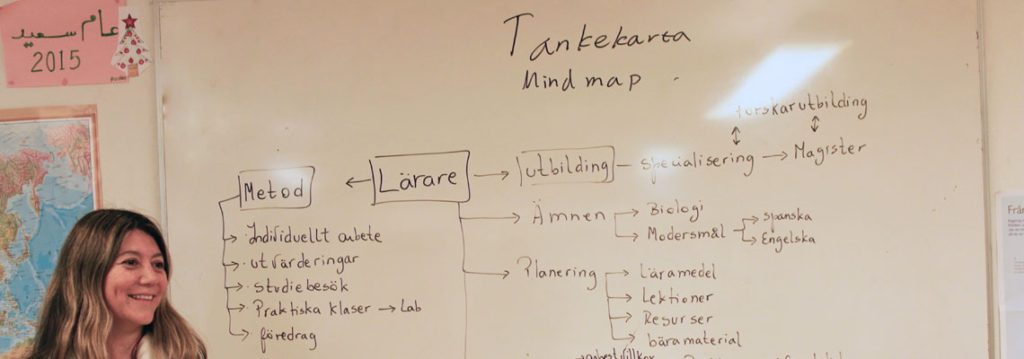 عام سعيد
2015
Tankekarta
Mind map
forskarutbildning
Metod
Lärare
utbilding
specialisering
Magister
Individuellt arbete
utvärderingar
studiebesök
Praktiska klaser
Lab
föredrag
Ämnen
Biologi
Modersmål
spanska
Engelska
Planering
Läramedel
Lektioner
Resurser
bäramaterial
Från